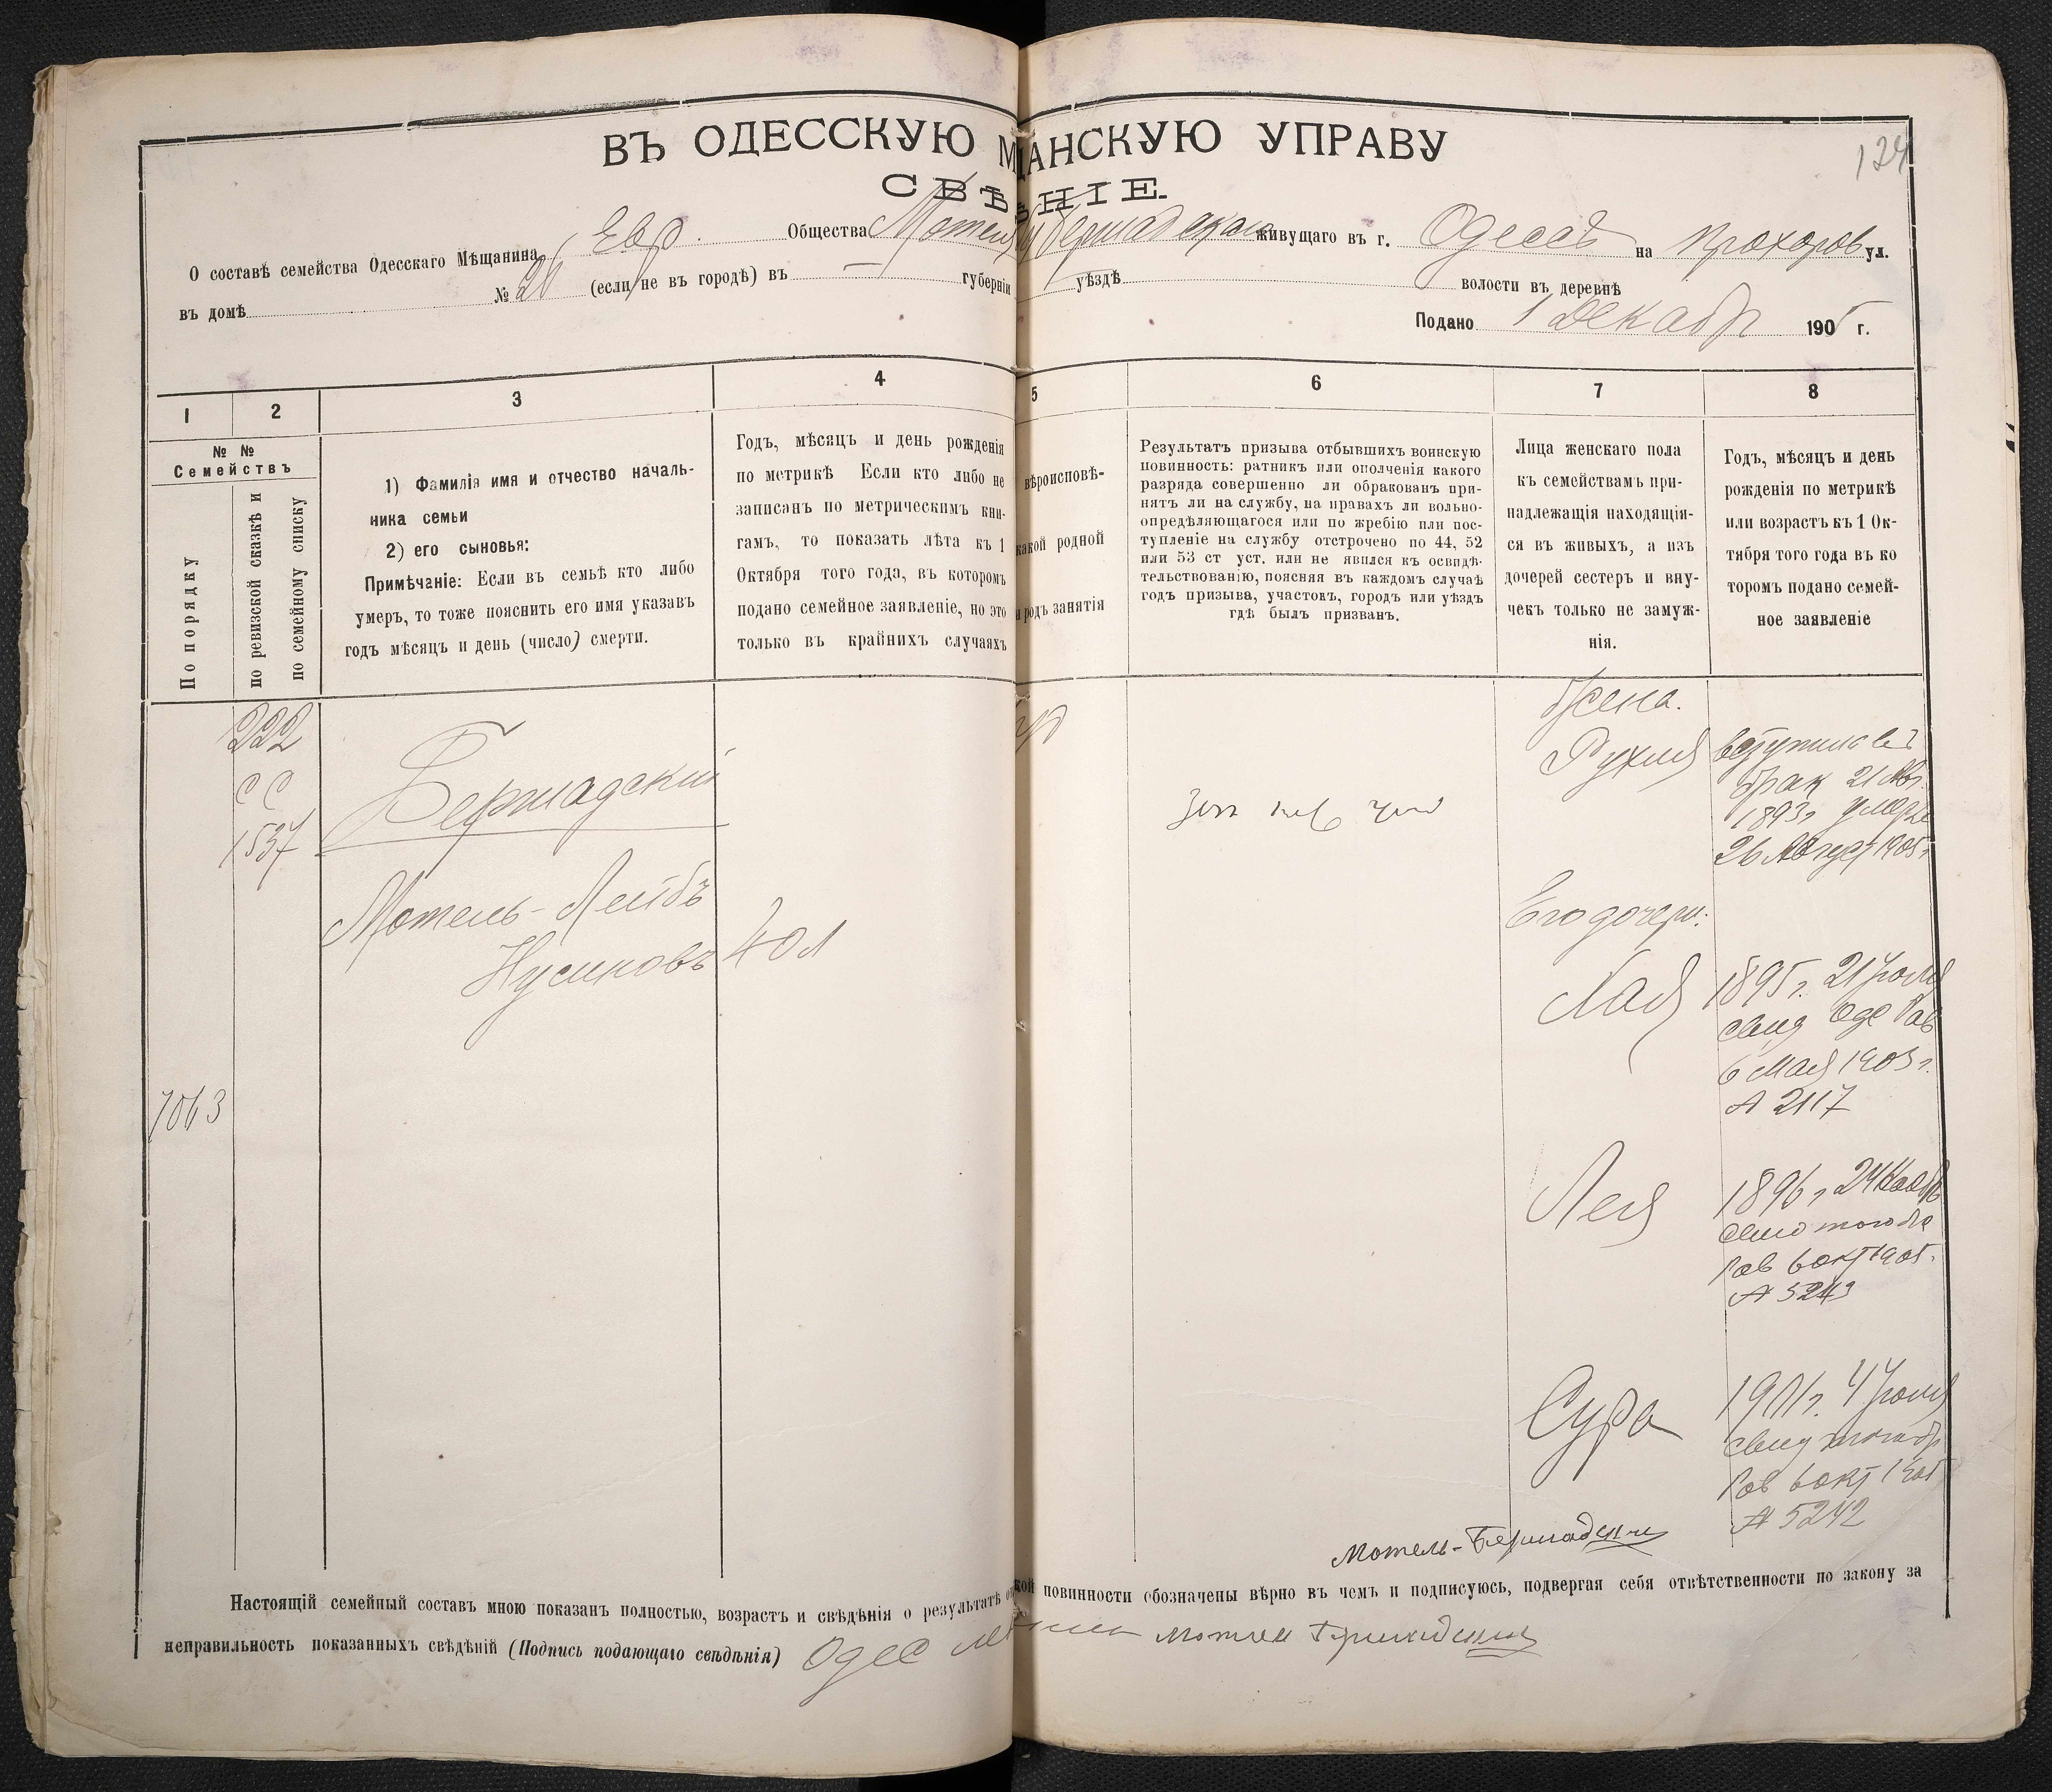 ВЪ ОДЕССКУЮ МѢЩАНСКУЮ УПРАВУ
124
СВѢДѢНІЕ.
О составѣ семейства Одесскаго Мѣщанина Евр. Общества Мотеля Бершадскаго живущаго въ г. Одессѣ на Прохоров ул.
въ домѣ № 26 (если не въ городѣ) въ — губерніи уѣздѣ волости въ деревнѣ
Подано 1 Декабр 1905 г.
1 2 3 4 5 6 7 8
№ №
Семействъ
По порядку
по ревизской сказкѣ и
по семейному списку
1) Фамилія имя и отчество началь-
ника семьи
2) его сыновья:
Примѣчаніе: Если въ семьѣ кто либо
умеръ, то тоже пояснить его имя указавъ
годъ мѣсяцъ и день (число) смерти.
Годъ, мѣсяцъ и день рожденія
по метрикѣ Если кто либо не
записанъ по метрическимъ кни-
гамъ, то показать лѣта къ 1
Октября того года, въ которомъ
подано семейное заявленіе, но это
только въ крайнихъ случаяхъ
вѣроисповѣ-
какой родной
и родъ занятія
Результатъ призыва отбывшихъ воинскую
повинность: ратникъ или ополченія какого
разряда совершенно ли обракованъ при-
нятъ ли на службу, на правахъ ли вольно-
опредѣляющагося или по жребію или пос-
тупленіе на службу отстрочено по 44, 52
или 53 ст уст. или не явился къ освидѣ-
тельствованію, поясняя въ каждомъ случаѣ
годъ призыва, участокъ, городъ или уѣздъ
гдѣ былъ призванъ.
Лица женскаго пола
къ семействамъ при-
надлежащія находящія-
ся въ живыхъ, а изъ
дочерей сестеръ и вну-
чекъ только не замуж-
нія.
Годъ, мѣсяцъ и день
рожденія по метрикѣ
или возрастъ къ 1 Ок-
тября того года въ ко
торомъ подано семей-
ное заявленіе
222
СС
1537
Бершадскій
Мотель-Лейбъ
Нусиновъ
40 л
7063
Жена.
Рухля
вступила въ
брак 21 Авг.
1893 г умерла
26 Август 1905 г
Его дочери:
Хая
1895 г. 21 Іюля
свид Одс Рав
6 Мая 1905 г.
№ 2117
Лея
1896 г 24 Ноября
свид того же
Рав 6 окт 1905.
№ 5243
Сура
1901 г. 4 Іюля
Рав 6 окт 1905
№ 5242
Мотель-Бершадский
Настоящій семейный составъ мною показанъ полностью, возрастъ и свѣдѣнія о результатѣ повинности обозначены вѣрно въ чемъ и подписуюсь, подвергая себя отвѣтственности по закону за
неправильность показанныхъ свѣдѣній (Подпись подающаго свѣдѣнія) Одес Мотель Бершадский